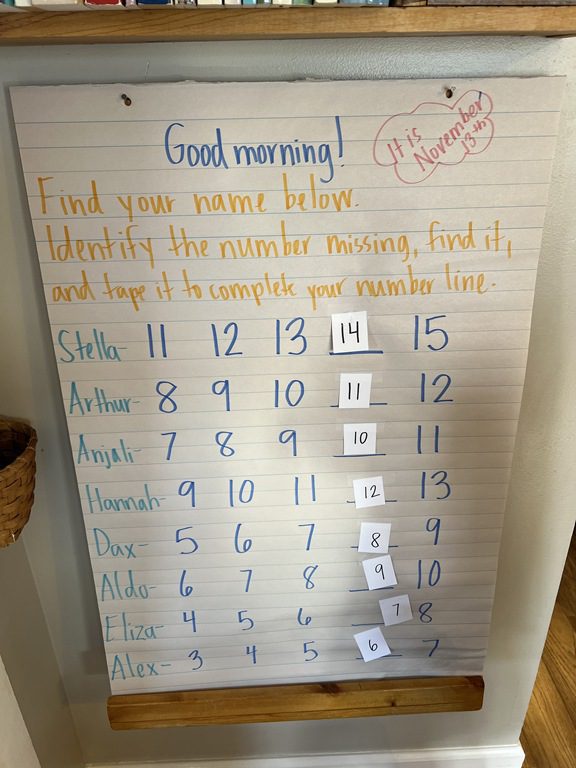 Good morning!
It is
November
13th
Find your name below.
Identify the number missing, find it,
and tape it to complete your number line.
Stella- 11 12 13 14 15
Arthur- 8 9 10 11 12
Anjali- 7 8 9 10 11
Hannah- 9 10 11 12 13
Dax- 5 6 7 8 9
Aldo- 6 7 8 9 10
Eliza- 4 5 6 7 8
Alex- 3 4 5 6 7